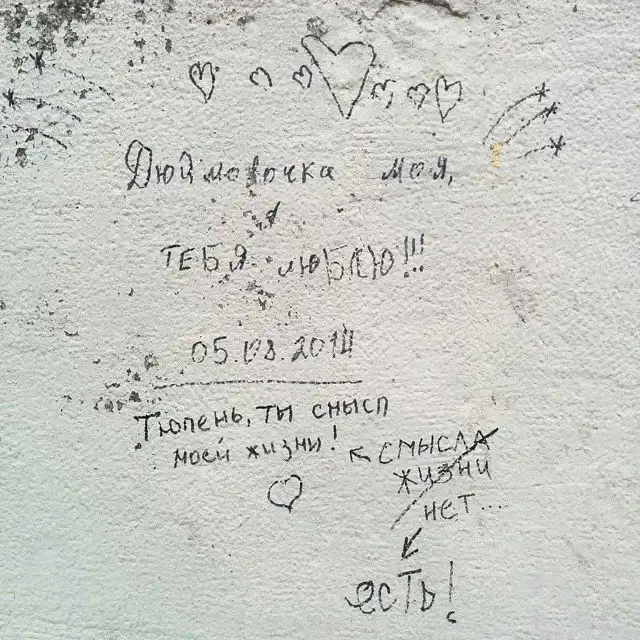 Дюймовочка моя,
я
ТЕБЯ люблю!!!
05.08.2014
Тюлень, ты смысл
моей жизни!
← СМЫСЛА
ЖИЗНИ
НЕТ...
есть!